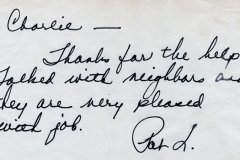 Charlie —
Thanks for the help
Talked with neighbors and
they are very pleased
with job.
Pat L.